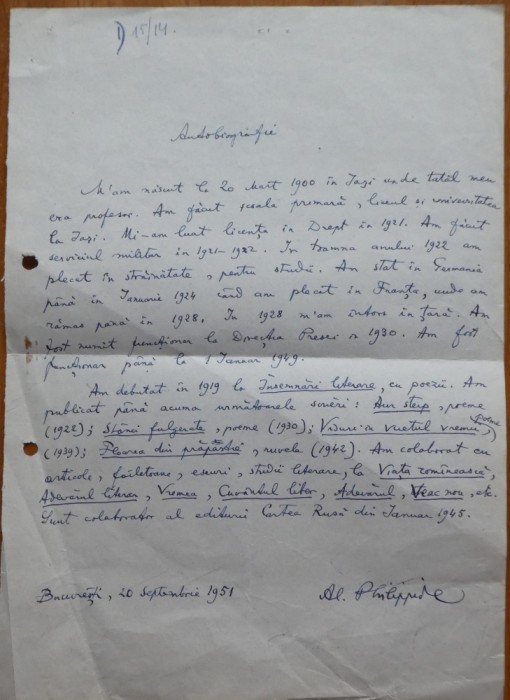 1) 15/14.
Autobiografie
M'am născut la 20 Mart 1900 în Iași unde tatăl meu
era profesor. Am făcut școala primară, liceul și universitatea
la Iași. Mi-am luat licența în Drept în 1921. Am făcut
serviciul militar în 1921-1922. În toamna anului 1922 am
plecat în străinătate, pentru studii. Am stat în Germania
până în Ianuarie 1924 când am plecat în Franța, unde am
rămas până în 1928. În 1928 m'am întors în țară. Am
fost numit funcționar la Direcția Presei în 1930. Am fost
funcționar până la 1 Ianuar 1949.
Am debutat în 1919 la Însemnări literare, cu poezii. Am
publicat până acuma următoarele scrieri: Aur sterp, poeme
(1922); Stânci fulgerate, poeme (1930); Visuri în vuetul vremii, poeme
(1939); Floarea din prăpastie, nuvele (1942). Am colaborat cu
articole, foiletoane, eseuri, studii literare, la Viața românească,
Adevărul literar, Vremea, Cuvântul liber, Adevărul, Veac nou, etc.
Sunt colaborator al editurii Cartea Rusă din Ianuar 1945.
București, 20 Septembrie 1951 Al. Philippide